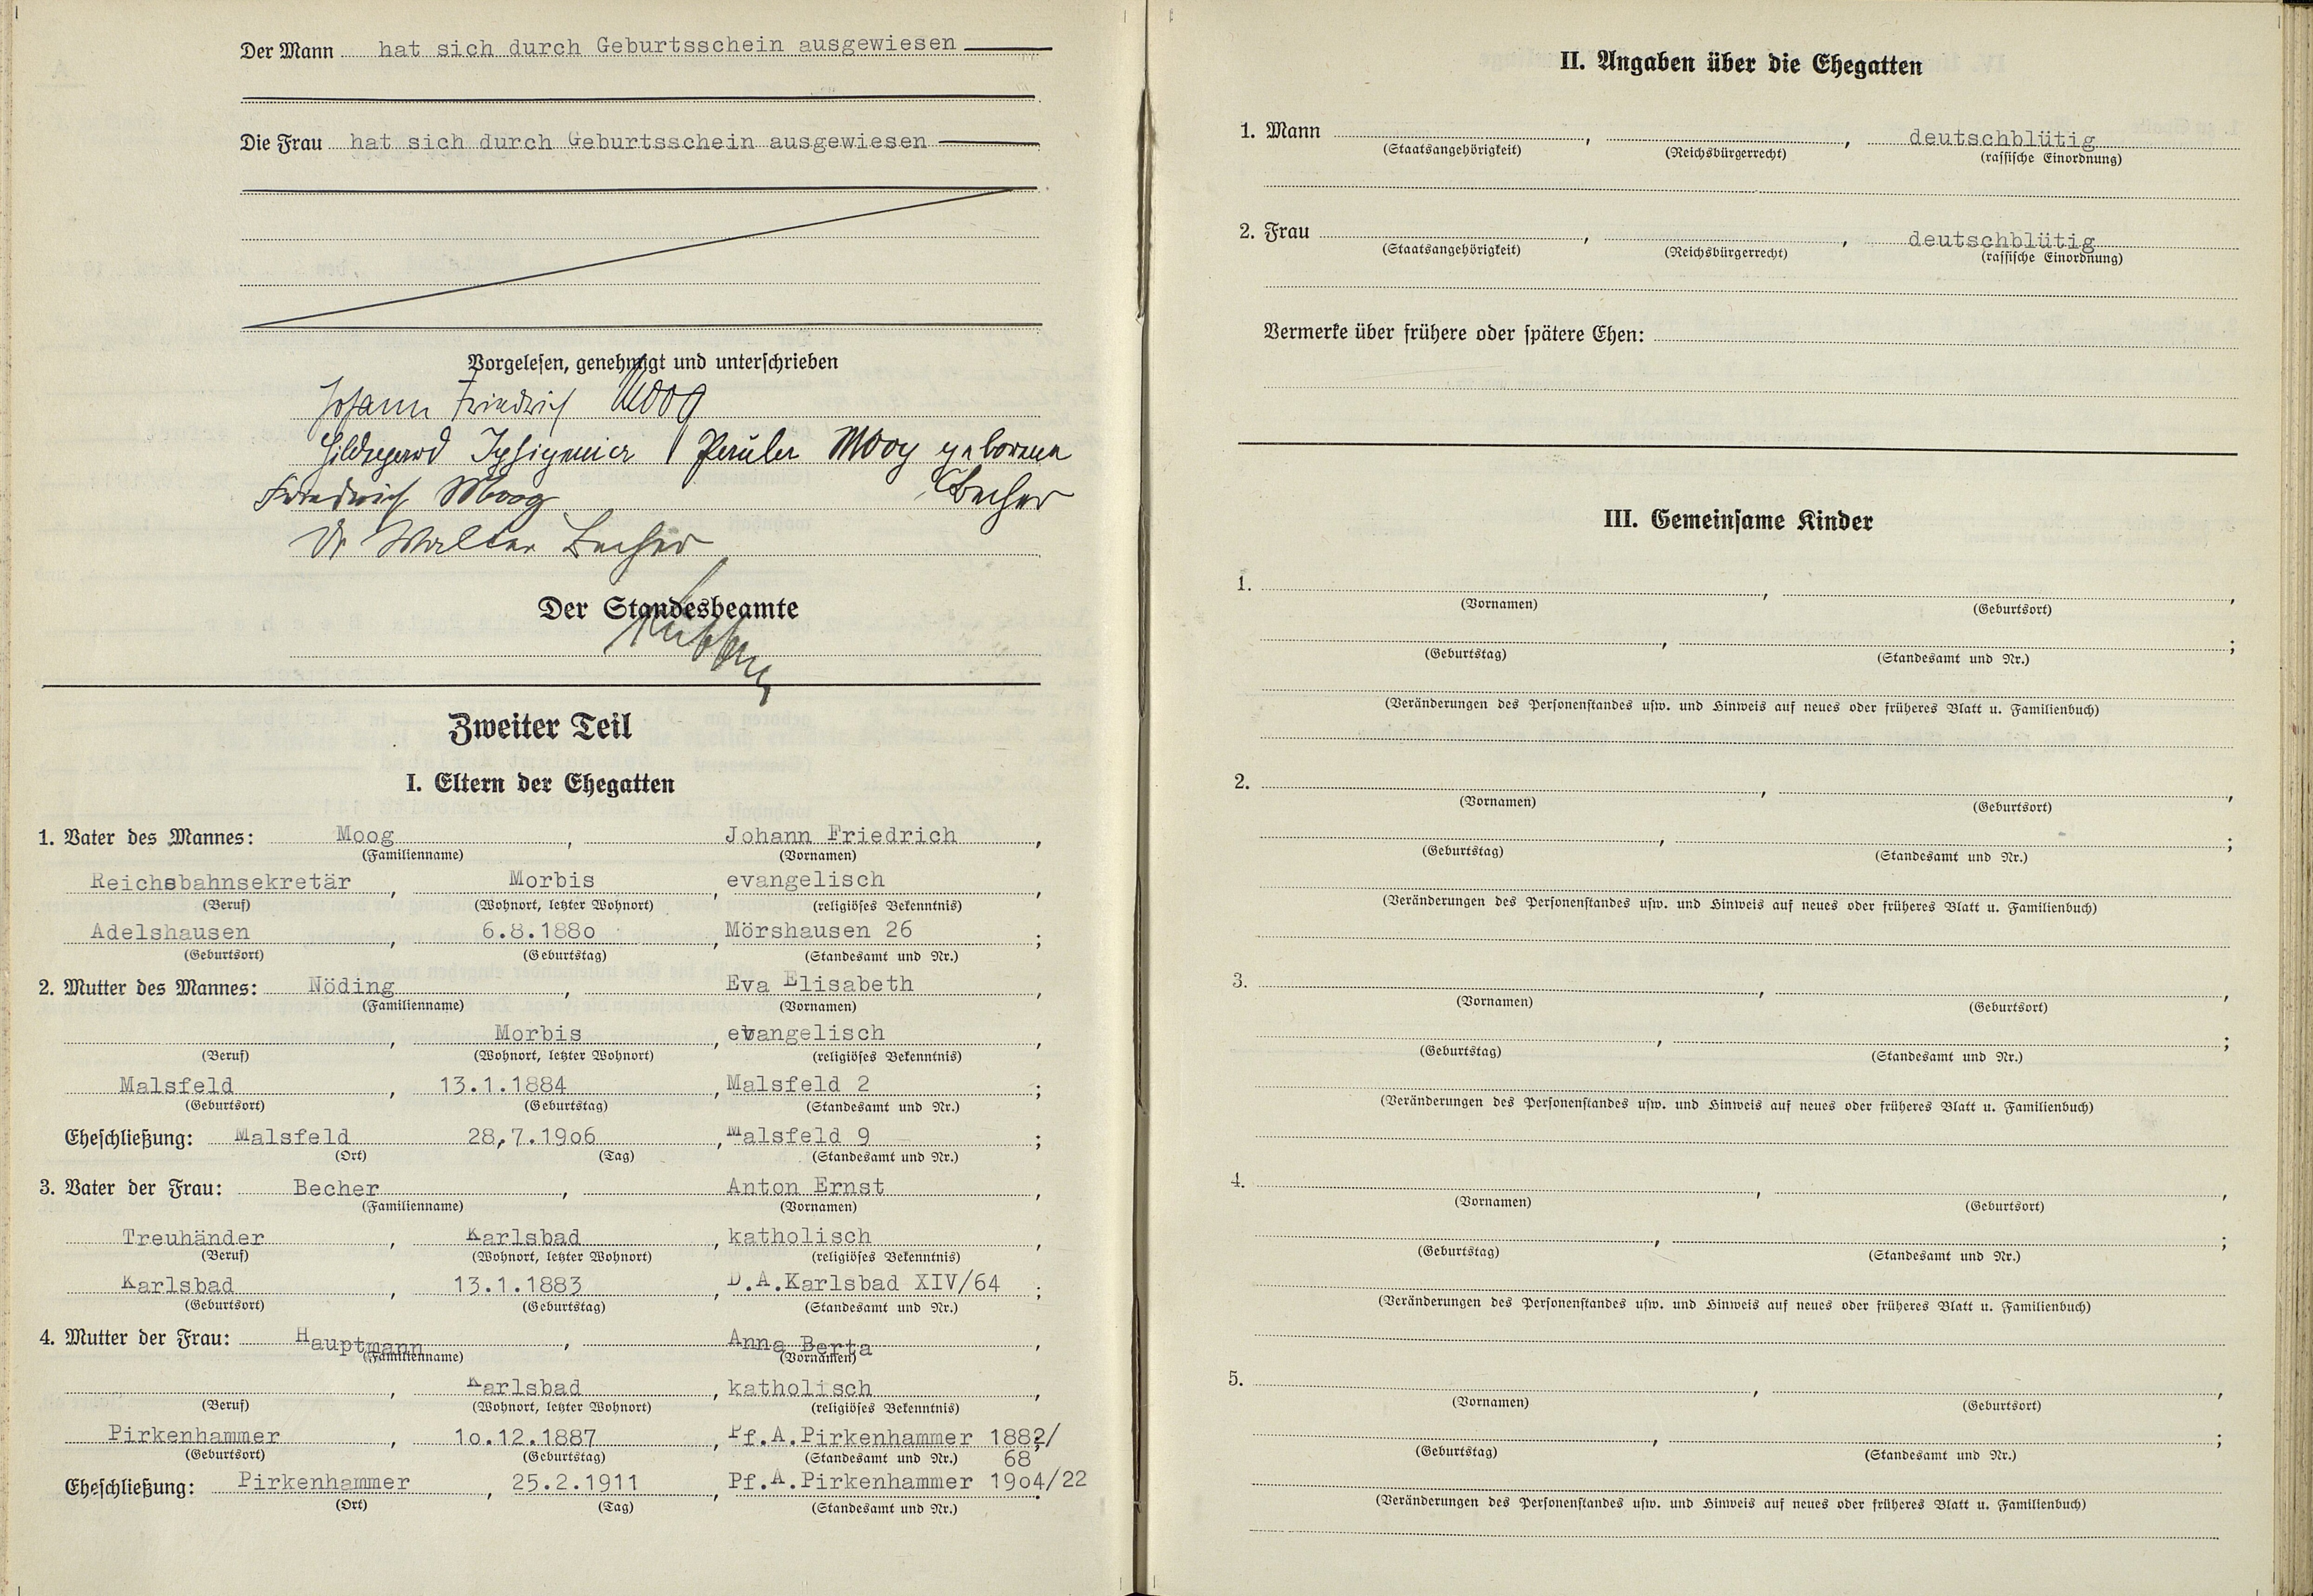 Der Mann hat sich durch Geburtsschein ausgewiesen
Die Frau hat sich durch Geburtsschein ausgewiesen
Vorgelesen, genehmigt und unterschrieben
Johann Friedrich Moog
Hildegard Iphigenia Paula Moog geborene
Becher
Friedrich Moog
Dr Walter Becher
Der Standesbeamte
Zweiter Teil
I. Eltern der Ehegatten
1. Vater des Mannes: Moog, Johann Friedrich,
(Familienname) (Vornamen)
Reichsbahnsekretär, Morbis, evangelisch,
(Beruf) (Wohnort, letzter Wohnort) (religiöses Bekenntnis)
Adelshausen, 6.8.188o, Mörshausen 26;
(Geburtsort) (Geburtstag) (Standesamt und Nr.)
2. Mutter des Mannes: Nöding, Eva Elisabeth,
(Familienname) (Vornamen)
, Morbis, evangelisch,
(Beruf) (Wohnort, letzter Wohnort) (religiöses Bekenntnis)
Malsfeld, 13.1.1884, Malsfeld 2;
(Geburtsort) (Geburtstag) (Standesamt und Nr.)
Eheschließung: Malsfeld 28,7.19o6, Malsfeld 9;
(Ort) (Tag) (Standesamt und Nr.)
3. Vater der Frau: Becher, Anton Ernst,
(Familienname) (Vornamen)
Treuhänder, Karlsbad, katholisch,
(Beruf) (Wohnort, letzter Wohnort) (religiöses Bekenntnis)
Karlsbad, 13.1.1883, D.A.Karlsbad XIV/64;
(Geburtsort) (Geburtstag) (Standesamt und Nr.)
4. Mutter der Frau: Hauptmann, Anna Berta,
(Familienname) (Vornamen)
, Karlsbad, katholisch,
(Beruf) (Wohnort, letzter Wohnort) (religiöses Bekenntnis)
Pirkenhammer, 1o.12.1887, Pf.A.Pirkenhammer 1882/
(Geburtsort) (Geburtstag) (Standesamt und Nr.) 68
Eheschließung: Pirkenhammer, 25.2.1911, Pf.A.Pirkenhammer 19o4/22
(Ort) (Tag) (Standesamt und Nr.)
II. Angaben über die Ehegatten
1. Mann , , deutschblütig
(Staatsangehörigkeit) (Reichsbürgerrecht) (rassische Einordnung)
2. Frau , , deutschblütig
(Staatsangehörigkeit) (Reichsbürgerrecht) (rassische Einordnung)
Vermerke über frühere oder spätere Ehen:
III. Gemeinsame Kinder
1. , ,
(Vornamen) (Geburtsort)
, ;
(Geburtstag) (Standesamt und Nr.)
(Veränderungen des Personenstandes usw. und Hinweis auf neues oder früheres Blatt u. Familienbuch)
2. , ,
(Vornamen) (Geburtsort)
, ;
(Geburtstag) (Standesamt und Nr.)
(Veränderungen des Personenstandes usw. und Hinweis auf neues oder früheres Blatt u. Familienbuch)
3. , ,
(Vornamen) (Geburtsort)
, ;
(Geburtstag) (Standesamt und Nr.)
(Veränderungen des Personenstandes usw. und Hinweis auf neues oder früheres Blatt u. Familienbuch)
4. , ,
(Vornamen) (Geburtsort)
, ;
(Geburtstag) (Standesamt und Nr.)
(Veränderungen des Personenstandes usw. und Hinweis auf neues oder früheres Blatt u. Familienbuch)
5. , ,
(Vornamen) (Geburtsort)
, ;
(Geburtstag) (Standesamt und Nr.)
(Veränderungen des Personenstandes usw. und Hinweis auf neues oder früheres Blatt u. Familienbuch)